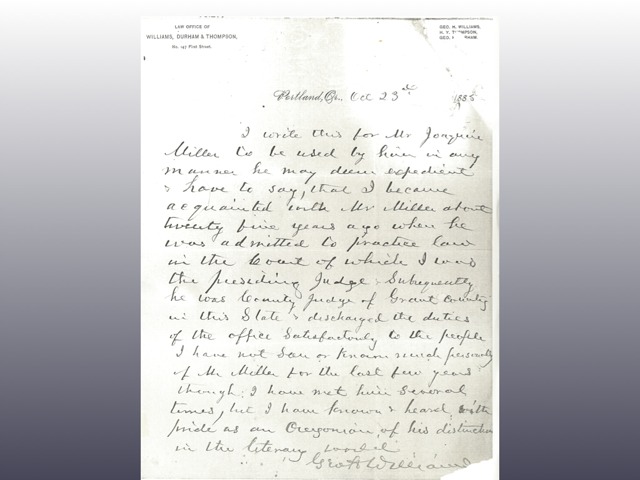 LAW OFFICE OF
WILLIAMS, DURHAM & THOMPSON,
No. 147 First Street.
GEO. H. WILLIAMS,
H. Y. THOMPSON,
GEO. HAM.
Portland, Or., Oct 23d 1885
I write this for Mr Joaquin
Miller to be used by him in any
manner he may deem expedient
& have to say, that I became
acquainted with Mr Miller about
twenty five years ago when he
was admitted to practice law
in the Court of which I was
the presiding Judge & Subsequently
he was County Judge of Grant County
in this State & discharged the duties
of the office Satisfactorily to the people
I have not Seen or Known much personally
of Mr Miller for the last few years
though I have met him Several
times, but I have known & heard with
pride as an Oregonian of his distinction
in the literary world
Geo H Williams